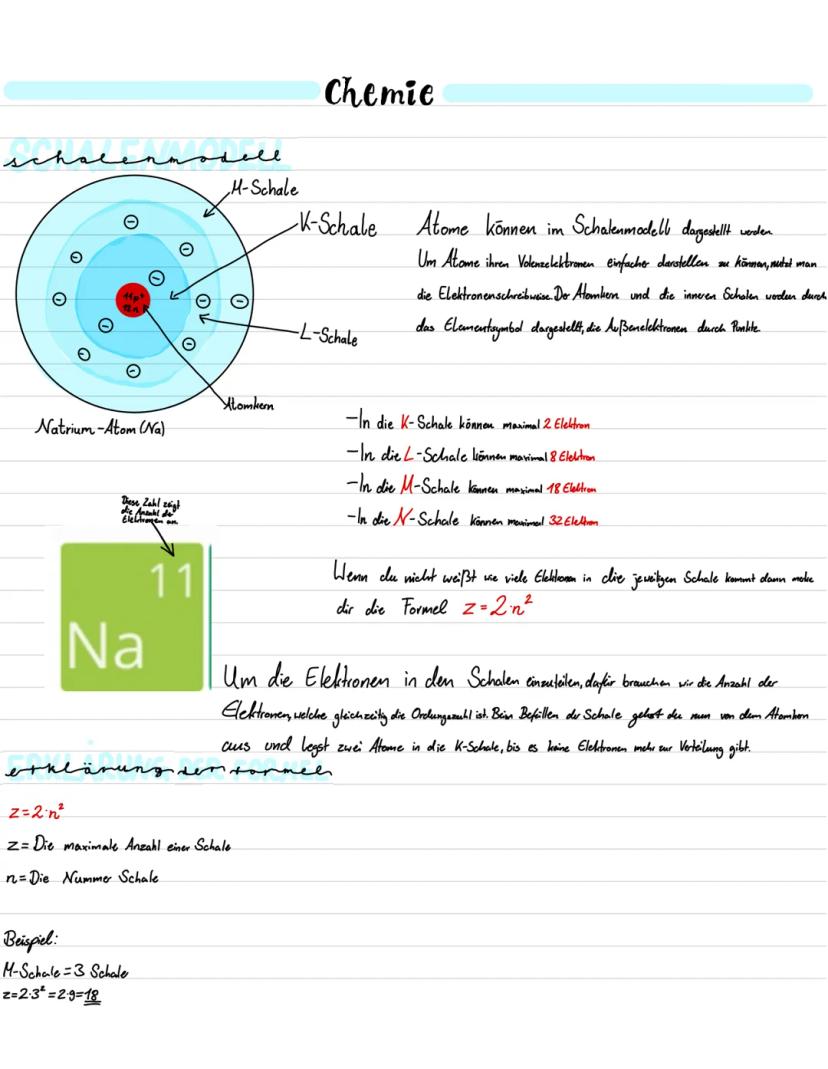 Chemie
SCHALENMODELL
schalenmodell
M-Schale
K-Schale
L-Schale
Atomkern
11p⁺
12n
Natrium-Atom (Na)
Atome können im Schalenmodell dargestellt werden.
Um Atome ihren Volenzelektronen einfacher darstellen zu können, nutzt man
die Elektronenschreibweise. Der Atomkern und die inneren Schalen werden durch
das Elementsymbol dargestellt, die Außenelektronen durch Punkte.
-In die K-Schale können maximal 2 Elektron
-In die L-Schale können maximal 8 Elektron
-In die M-Schale können maximal 18 Elektron
-In die N-Schale können maximal 32 Elektron
Diese Zahl zeigt
die Anzahl der
Elektronen an.
11
Na
Wenn du nicht weißt wie viele Elektronen in die jeweitgen Schale kommt dann
dir die Formel z=2·n²
Um die Elektronen in den Schalen einzuteilen, dafür brauchen wir die Anzahl der
Elektronen, welche gleichzeitig die Ordungszahl ist. Beim Befüllen der Schale gehst du nun von dem Atomkern
aus und legst zwei Atome in die K-Schale, bis es keine Elektronen mehr zur Verteilung gibt.
ERKLÄRUNG DER FORMEL
erklärung der formel
z=2·n²
z= Die maximale Anzahl einer Schale
n= Die Nummer Schale
Beispiel:
M-Schale = 3 Schale
z=2·3²=2·9=18